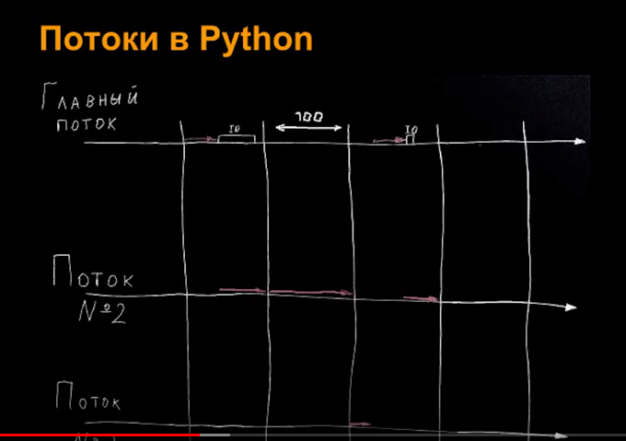 Потоки в Python
Главный
поток
IO
100
IO
Поток
№2
Поток